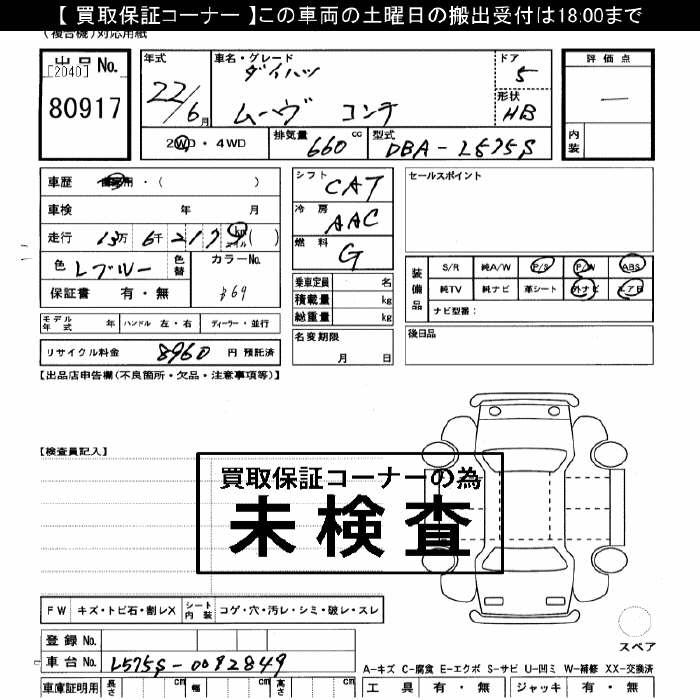 【 買取保証コーナー 】この車両の土曜日の搬出受付は18:00まで
(複合機)対応用紙
出品 No.
[2040]
80917
年式
22/6月
車名・グレード
ダイハツ
ムーヴ コンテ
ドア
5
形状
HB
評価点
—
内装
2WD・4WD
排気量 660 cc
型式 DBA-L575S
車歴 自家用・( )
車検 年 月
走行 13万 6千 2179 km マイル ( )
色 Lブルー 色替
カラーNo.
保証書 有・無
シフト CAT
冷房 AAC
燃料 G
セールスポイント
乗車定員 名
積載量 kg
総重量 kg
装備品
S/R 純A/W P/S P/W ABS
純TV 純ナビ 革シート 外ナビ エアB
ナビ型番：
モデル年式 年 ハンドル 左・右 ディーラー・並行
名変期限
月 日
後日品
リサイクル料金 8960 円 預託済
【出品店申告欄(不良箇所・欠品・注意事項等)】
【検査員記入】
買取保証コーナーの為
未検査
FW キズ・トビ石・割レX シート内装 コゲ・穴・汚レ・シミ・破レ・スレ
スペア
登録 No.
車台 No. L575S-0082849
A-キズ C-腐食 E-エクボ S-サビ U-凹ミ W-補修 XX-交換済
車庫証明用 長さ cm 幅 cm 高さ cm
工具 有・無 ジャッキ 有・無